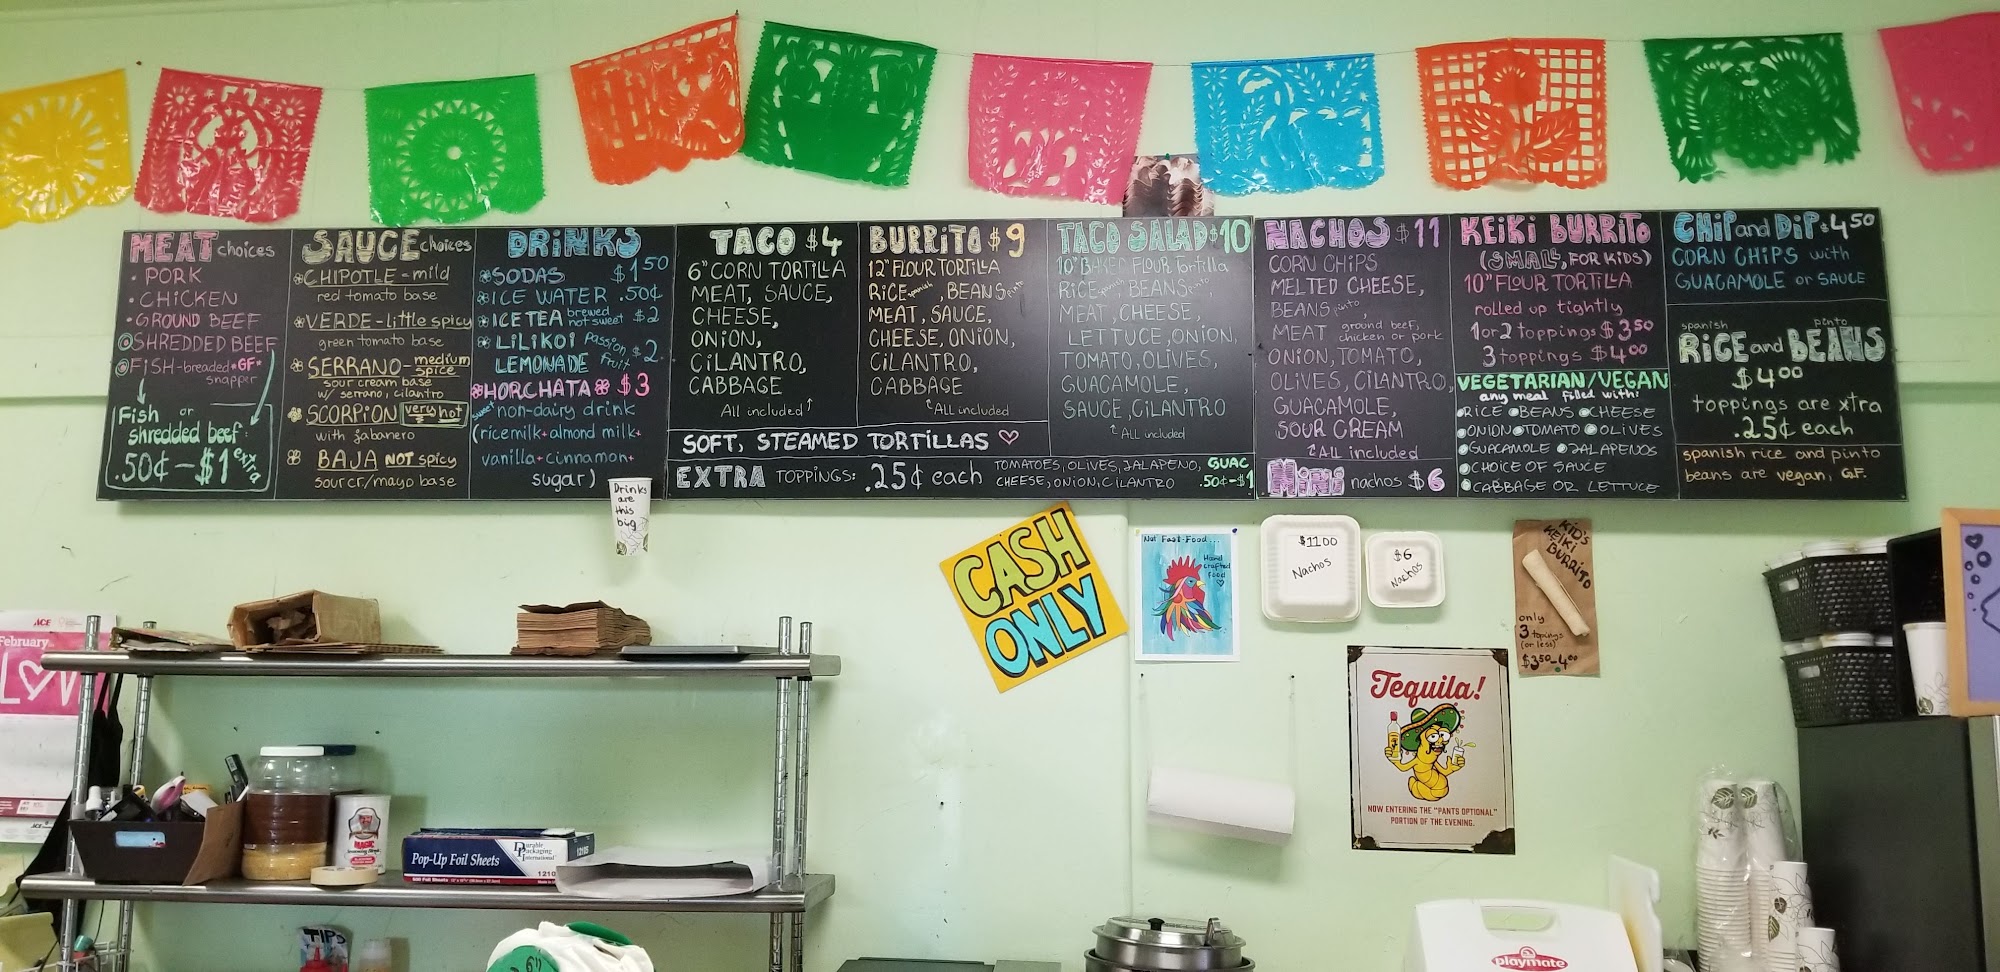 MEAT choices
• PORK
• CHICKEN
• GROUND BEEF
SHREDDED BEEF
FISH-breaded *GF*
snapper
Fish or
shredded beef:
.50¢-$1 extra
SAUCE choices
CHIPOTLE - mild
red tomato base
VERDE - little spicy
green tomato base
SERRANO - medium spice
sour cream base
w/ serrano, cilantro
SCORPION very hot
with jabanero
BAJA NOT spicy
sour cr/mayo base
DRINKS
SODAS $1.50
ICE WATER .50¢
ICE TEA brewed not sweet $2
LILIKOI Passion fruit
LEMONADE $2.
HORCHATA $3
sweet non-dairy drink
(rice milk + almond milk +
vanilla + cinnamon +
sugar)
Drinks
are
this
big
TACO $4
6" CORN TORTILLA
MEAT, SAUCE,
CHEESE,
ONION,
CILANTRO,
CABBAGE
All included
BURRITO $9
12" FLOUR TORTILLA
RICE spanish, BEANS pinto
MEAT, SAUCE,
CHEESE, ONION,
CILANTRO,
CABBAGE
ALL included
SOFT, STEAMED TORTILLAS
EXTRA TOPPINGS: .25¢ each
TOMATOES, OLIVES, JALAPENO, GUAC
CHEESE, ONION, CILANTRO .50¢-$1
TACO SALAD $10
10" BAKED FLOUR Tortilla
RICE spanish, BEANS pinto,
MEAT, CHEESE,
LETTUCE, ONION,
TOMATO, OLIVES,
GUACAMOLE,
SAUCE, CILANTRO
ALL included
NACHOS $11
CORN CHIPS
MELTED CHEESE,
BEANS pinto,
MEAT ground beef, chicken or pork
ONION, TOMATO,
OLIVES, CILANTRO,
GUACAMOLE,
SOUR CREAM
ALL included
Mini nachos $6
KEIKI BURRITO
(SMALL, FOR KIDS)
10" FLOUR TORTILLA
rolled up tightly
1 or 2 toppings $3.50
3 toppings $4.00
VEGETARIAN/VEGAN
any meal filled with:
RICE BEANS CHEESE
ONION TOMATO OLIVES
GUACAMOLE JALAPENOS
CHOICE OF SAUCE
CABBAGE OR LETTUCE
CHIP and DIP $4.50
CORN CHIPS with
GUACAMOLE or SAUCE
spanish pinto
RICE and BEANS
$4.00
toppings are xtra
.25¢ each
spanish rice and pinto
beans are vegan, GF.
CASH
ONLY
Not Fast-Food...
Hand
crafted
food
$11.00
Nachos
$6
Nachos
KID'S
KEIKI
BURRITO
only
3 topings
(or less)
$3.50-4.00
Tequila!
NOW ENTERING THE "PANTS OPTIONAL"
PORTION OF THE EVENING.
ACE
February
LOV
MAGIC
Pop-Up Foil Sheets
Durable
Packaging
International
12105
TIPS
playmate